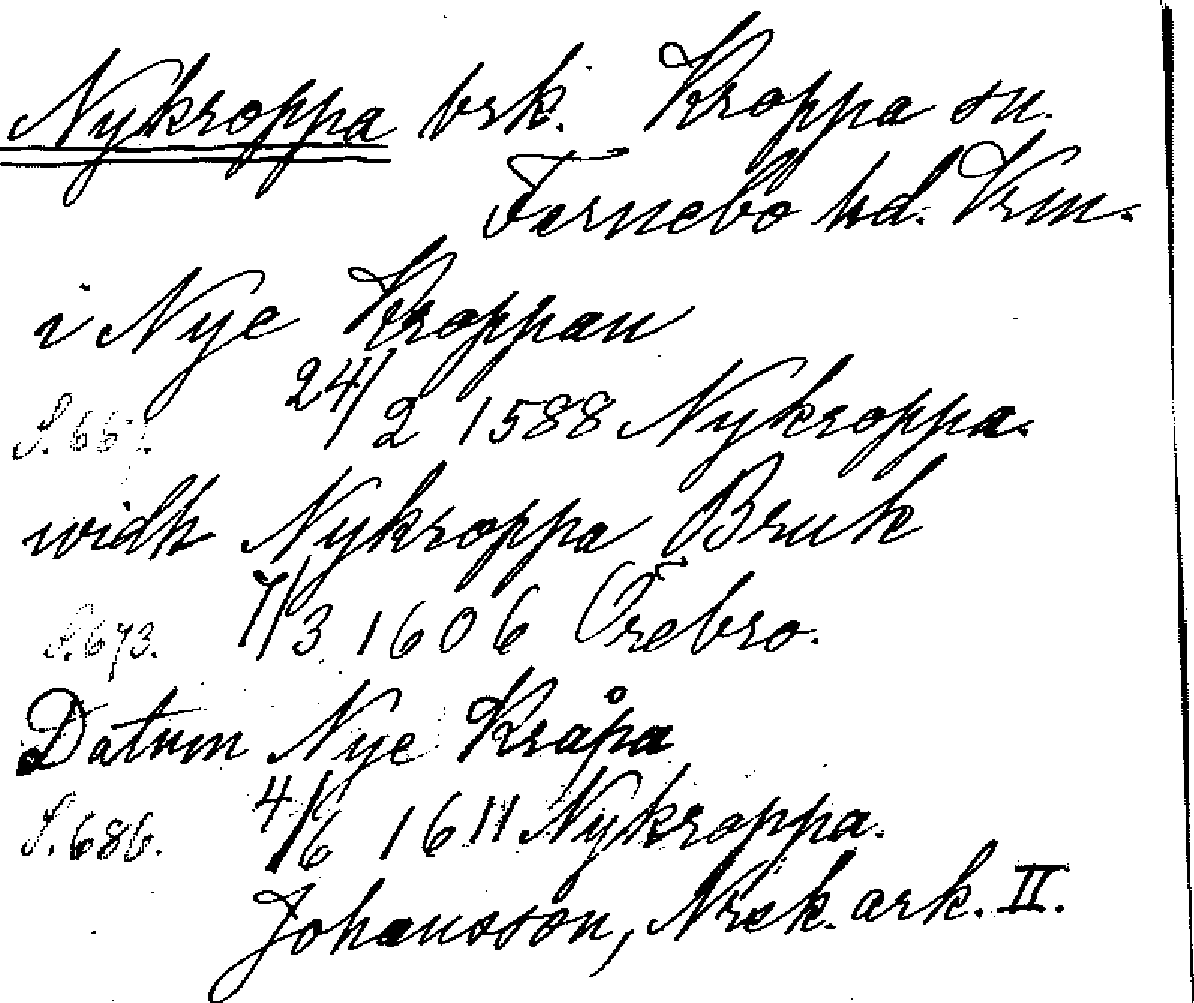 Nykroppa brk. Kroppa sn.
Färnebo hd. Vrm.
i Nye Kroppan
24/2 1588 Nykroppa.
widh Nykroppa Bruk
S. 673. 7/3 1606 Örebro.
Datum Nye Kråpa
S. 686. 4/6 1611 Nykroppa.
Johansson, Nrck. ark. II.